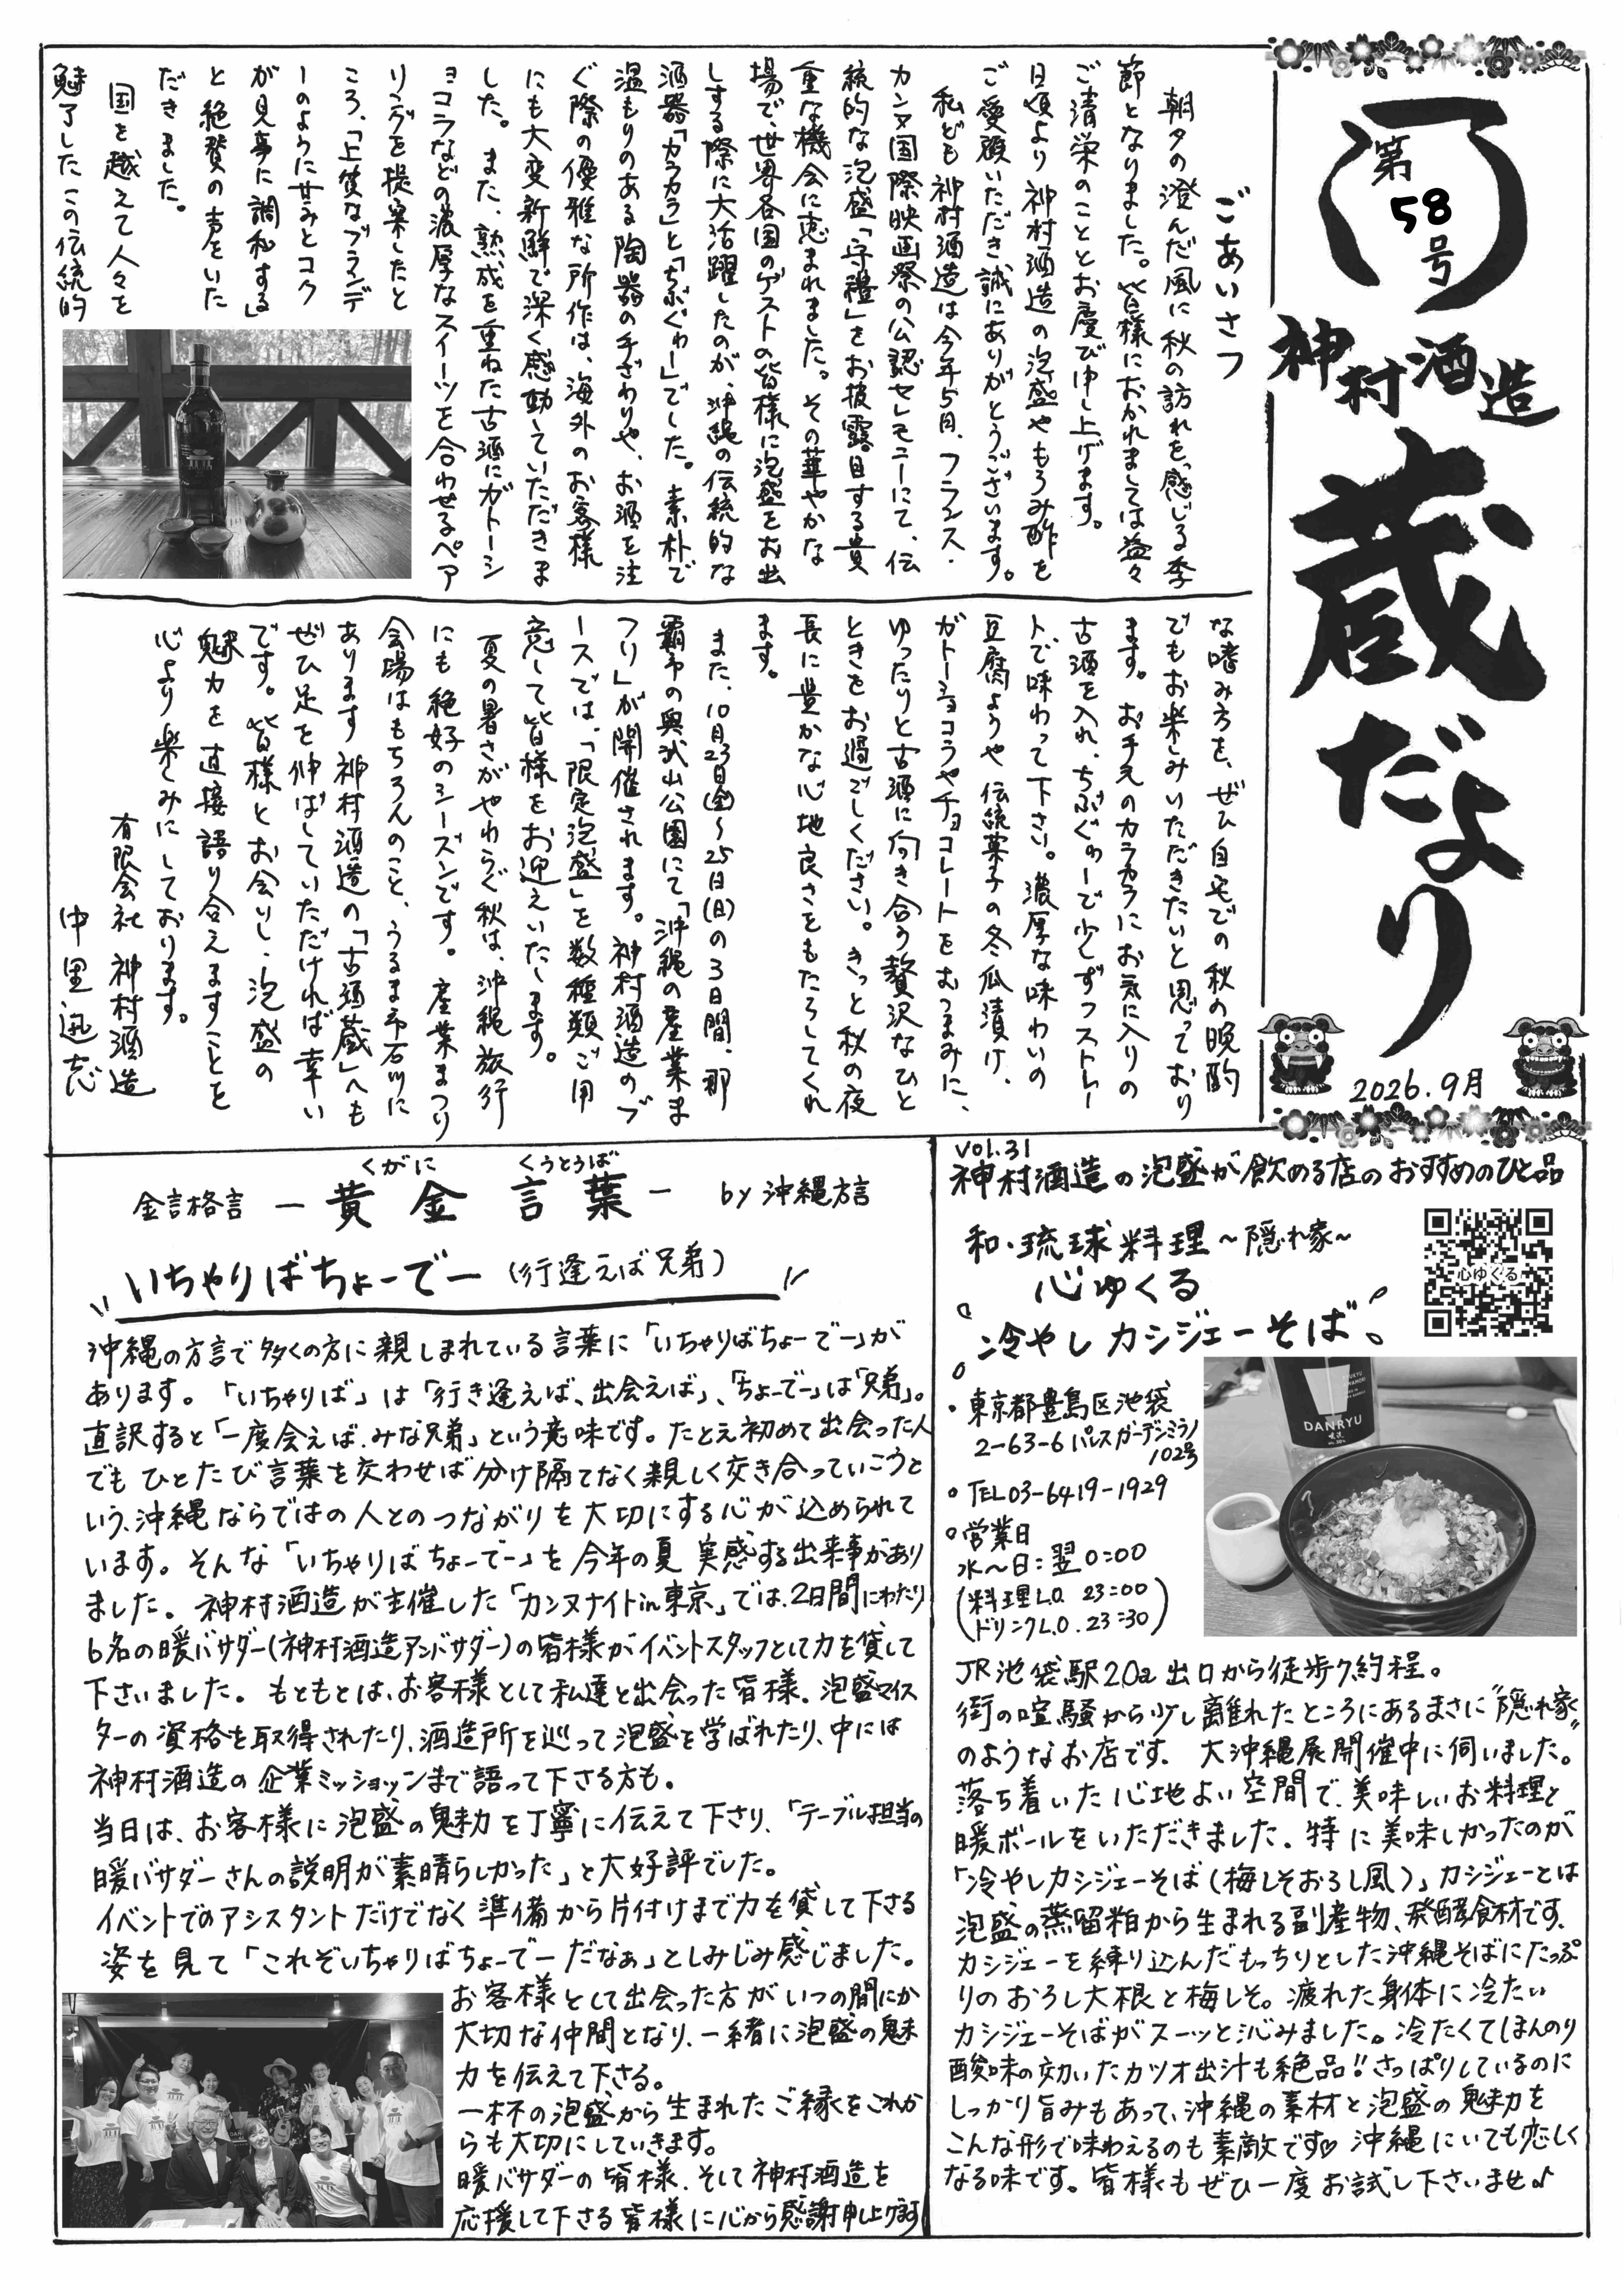 第
58
号
神村酒造
蔵だより
2026.9月
ごあいさつ
朝夕の澄んだ風に秋の訪れを感じる季
節となりました。皆様におかれましては益々
ご清栄のこととお慶び申し上げます。
日頃より神村酒造の泡盛やもろみ酢を
ご愛顧いただき誠にありがとうございます。
私ども神村酒造は今年5月、フランス・
カンヌ国際映画祭の公認セレモニーにて、伝
統的な泡盛「守禮」をお披露目する貴
重な機会に恵まれました。その華やかな
場で、世界各国のゲストの皆様に泡盛をお出
しする際に大活躍したのが、沖縄の伝統的な
酒器「カラカラ」と「ちぶぐゎー」でした。素朴で
温もりのある陶器の手ざわりや、お酒を注
ぐ際の優雅な所作は、海外のお客様
にも大変新鮮で深く感動していただきま
した。また、熟成を重ねた古酒にガトーシ
ョコラなどの濃厚なスイーツを合わせるペア
リングを提案したと
ころ、「上質なブランデ
ーのように甘みとコク
が見事に調和する」
と絶賛の声をいた
だきました。
国を越えて人々を
魅了したこの伝統的
な嗜み方を、ぜひ自宅での秋の晩酌
でもお楽しみいただきたいと思っており
ます。お手元のカラカラにお気に入りの
古酒を入れ、ちぶぐゎーで少しずつストレー
トで味わって下さい。濃厚な味わいの
豆腐ようや伝統菓子の冬瓜漬け、
ガトーショコラやチョコレートをおつまみに、
ゆったりと古酒に向き合う贅沢なひと
ときをお過ごしください。きっと秋の夜
長に豊かな心地良さをもたらしてくれ
ます。
また、10月23日(金)〜25日(日)の3日間、那
覇市の奥武山公園にて「沖縄の産業ま
つり」が開催されます。神村酒造のブ
ースでは、「限定泡盛」を数種類ご用
意して皆様をお迎えいたします。
夏の暑さがやわらぐ秋は、沖縄旅行
にも絶好のシーズンです。産業まつり
会場はもちろんのこと、うるま市石川に
あります神村酒造の「古酒蔵」へも
ぜひ足を伸ばしていただければ幸い
です。皆様とお会いし、泡盛の
魅力を直接語り合えますことを
心より楽しみにしております。
有限会社 神村酒造
中里迅志
金言格言 ー 黄金 言葉 ー by 沖縄方言
くがに くうとうば
いちゃりばちょーでー (行逢えば兄弟)
沖縄の方言で多くの方に親しまれている言葉に「いちゃりばちょーでー」が
あります。「いちゃりば」は「行き逢えば、出会えば」、「ちょーでー」は「兄弟」。
直訳すると「一度会えば、みな兄弟」という意味です。たとえ初めて出会った人
でもひとたび言葉を交わせば分け隔てなく親しく交き合っていこうと
いう、沖縄ならではの人とのつながりを大切にする心が込められて
います。そんな「いちゃりばちょーでー」を今年の夏 実感する出来事があり
ました。神村酒造が主催した「カンヌナイトin東京」では、2日間にわたり
6名の暖バサダー(神村酒造アンバサダー)の皆様がイベントスタッフとして力を貸して
下さいました。もともとは、お客様として私達と出会った皆様。泡盛マイス
ターの資格を取得されたり、酒造所を巡って泡盛を学ばれたり、中には
神村酒造の企業ミッションまで語って下さる方も。
当日は、お客様に泡盛の魅力を丁寧に伝えて下さり、「テーブル担当の
暖バサダーさんの説明が素晴らしかった」と大好評でした。
イベントでのアシスタントだけでなく準備から片付けまで力を貸して下さる
姿を見て「これぞいちゃりばちょーでーだなぁ」としみじみ感じました。
お客様として出会った方がいつの間にか
大切な仲間となり、一緒に泡盛の魅
力を伝えて下さる。
一杯の泡盛から生まれたご縁をこれか
らも大切にしていきます。
暖バサダーの皆様、そして神村酒造を
応援して下さる皆様に心から感謝申し上げます
vol.31
神村酒造の泡盛が飲める店のおすすめのひと品
和・琉球料理〜隠れ家〜
心ゆくる
心ゆくる
冷やしカシジェーそば
・東京都豊島区池袋
2-63-6 パレスガーデンミラノ
102号
・TEL03-6419-1929
・営業日
水〜日:翌0:00
(料理L.O. 23:00
ドリンクL.O. 23:30)
DANRYU
JR池袋駅20a出口から徒歩7分程。
街の喧騒から少し離れたところにあるまさに"隠れ家"
のようなお店です。大沖縄展開催中に伺いました。
落ち着いた心地よい空間で、美味しいお料理と
暖ボールをいただきました。特に美味しかったのが
「冷やしカシジェーそば(梅しそおろし風)」カシジェーとは
泡盛の蒸留粕から生まれる副産物、発酵食材です。
カシジェーを練り込んだもっちりとした沖縄そばにたっぷ
りのおろし大根と梅しそ。疲れた身体に冷たい
カシジェーそばがスーッと沁みました。冷たくてほんのり
酸味の効いたカツオ出汁も絶品!!さっぱりしているのに
しっかり旨みもあって、沖縄の素材と泡盛の魅力を
こんな形で味わえるのも素敵です♡ 沖縄にいても恋しく
なる味です。皆様もぜひ一度お試し下さいませ♪